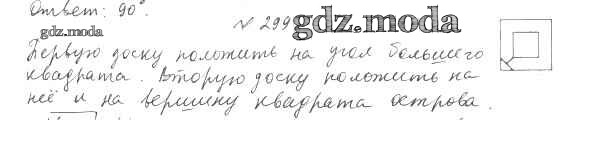 Ответ: 90°.
№ 299
gdz.moda
gdz.moda
Первую доску положить на угол большего
квадрата. Вторую доску положить на
неё и на вершину квадрата острова.